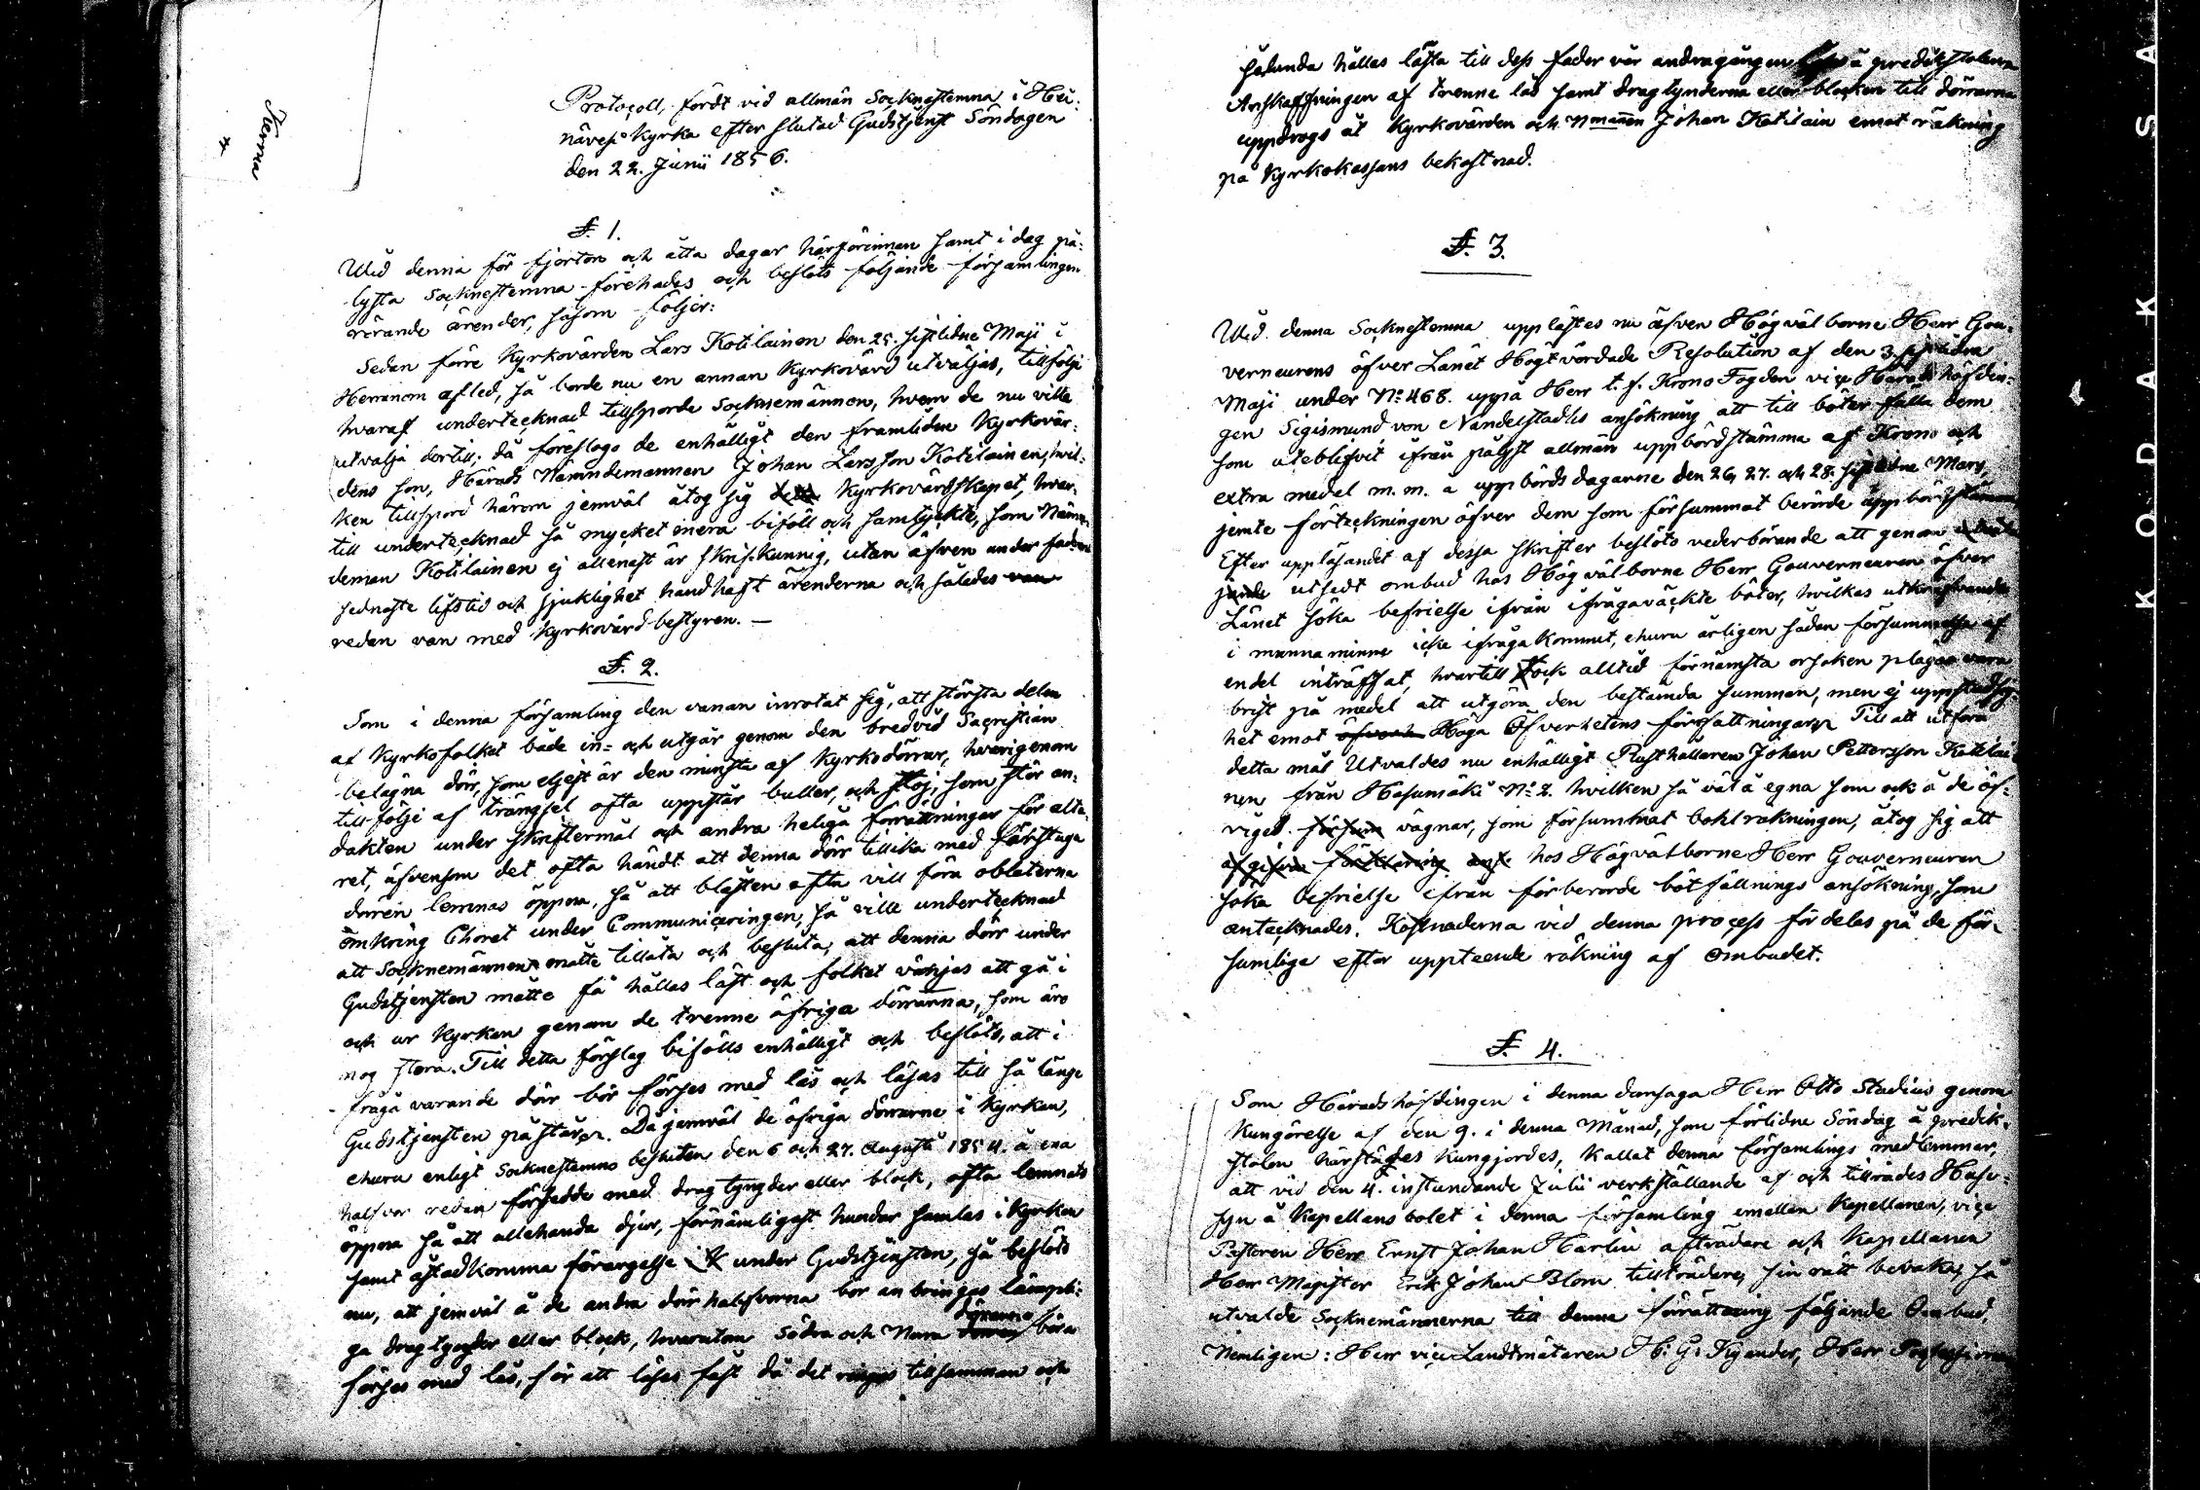 Protocoll, fördt vid allmän Socknestemna i Hei-
nävesi Kyrka efter slutad Gudstjenst Söndagen
den 22. Junii 1856.
§. 1.
Wid denna för fjorton och åtta dagar härförinnan samt i dag på-
lysta Socknestemna förehades och beslöts följande församlingen
rörande ärender, såsom följer:
Sedan förre Kyrkovärden Lars Kotilainen den 25. sistlidne Maji i
Herranom afled, så borde nu en annan Kyrkovärd utväljas, tillfölje
hvaraf undertecknad tillsporde Socknemännen, hvem de nu ville
utvälja dertill; då föreslogo de enhälligt den framlidne Kyrkovär-
dens son, Härads Nämndemannen Johan Larsson Kotilainen, hvil-
ken tillspord härom jemväl åtog sig Kyrkovärdskapet, hvar-
till undertecknad så mycket mera biföll och samtyckte, som Nämn-
deman Kotilainen ej allenast är skrifkunnig, utan äfven under fadren
sednaste lifstid och sjuklighet handhaft ärenderna och således van
redan van med Kyrkovärd bestyren. —
§. 2.
Som i denna församling den vanan inrotat sig, att största delen
af Kyrkofolket både in- och utgår genom den bredvid Sacristian
belägna dörr, som eljest är den minsta af Kyrkodörrar, hvarigenom
till följe af trängsel ofta uppstår buller, och stoj, som stör an-
dakten under skriftermål och andra heliga förrättningar för alta-
ret, äfvensom det ofta händt att denna dörr tillika med förstuga
dörren lemnas öppna, så att blåsten ofta vill föra oblaterna
omkring Choret under Communiceringen, så ville undertecknad
att Socknemännen måtte tillåta och besluta, att denna dörr under
Gudstjensten måtte få hållas låst och folket vänjas att gå i
och ur Kyrkan genom de trenne öfriga dörrarna, som äro
nog stora. Till detta förslag bifölls enhälligt och beslöts, att i
fråga varande dörr bör förses med lås och låsas till så länge
Gudstjensten påstår. Då jemväl de öfriga dörrarne i Kyrkan,
ehuru enligt Socknestemno besluten den 6 och 27. Augusti 1854. å ena
halfvor redan försedde med drag tyngder eller block, ofta lemnats
öppna så att allehanda djur, förnämligast hundar samlas i Kyrkan
samt åstadkomma förargelse under Gudstjensten, så beslöts
nu, att jemväl å de andra dörr halfvorna bör anbringas lämpli-
ga dragtyngder eller block, hvarutom Södra och Norra dörrarne böra
förses med lås, för att låsas fast då det ringes tillsamman och
sålunda hållas låsta till dess Fader vår andragången å predikstolen
Anskaffningen af trenne lås samt dragtynderna eller blocken till dörrarna
uppdrogs åt Kyrkovärden och Nmannen Johan Kotilain emot räkning
på Kyrkokassans bekostnad.
§. 3.
Wid denna Socknestemna upplästes nu äfven Högvälborne Herr Gou-
verneurens öfver Länet Högtvördade Resolution af den 3.
Maji under No 468. uppå Herr t. f. Krono Fogden vice Häradshöfdin-
gen Sigismund von Nandelstadhs ansökning att till böter fälla dem
som uteblifvit ifrån pålyst allmän uppbördstämma af Krono och
extra medel m. m. å uppbördsdagarne den 26, 27. och 28. sistlidne Mars,
jemte förteckningen öfver dem som försummat berörde uppbördstämma
Efter uppläsandet af dessa skrifter beslöto vederbörande att genom
utsedt ombud hos Högvälborne Herr Gouverneuren öfver
Länet söka befrielse ifrån ifrågaväckte böter, hvilkas utkräfvande
i mannaminne icke ifråga kommit, ehuru årligen sådan försummelse af
endel inträffat, hvartill dock alltid förnämsta orsaken plägar vara
brist på medel att utgöra den bestämda summan, men ej uppstudsig-
het emot Höga Öfverhetens författningar. Till att utföra
detta mål Utvaldes nu enhälligt Rusthållaren Johan Pettersson Kotilai-
nen från Hasumäki No 2. hvilken så väl å egna som ock å de öf-
riges vägnar, som försummat bohlräkningen, åtog sig att
hos Högvälborne Herr Gouverneuren
söka befrielse ifrån förberörde bötfällnings ansökning, som
antecknades. Kostnaderna vid denna process fördelas på de för-
sumliga efter uppteende räkning af Ombudet.
§. 4.
Som Häradshöfdingen i denna domsaga Herr Otto Stadius genom
Kungörelse af den 9. i denna Månad, som förlidne Söndag å predik-
stolen härstädes kungjordes, kallat denna församlings medlemmar,
att vid den 4. instundande Julii verkställande af och tillträdes Husv-
syn å Kapellansbolet i denna församling emellan Kapellanen, vice
Pastoren Herr Ernst Johan Härlin afträdare och Kapellanen
Herr Magister Erik Johan Blom tillträdare, sin rätt bevaka, så
utvalde Socknemännerna till denna förrättning följande Ombud,
Nemligen: Herr vice Landtmätaren H. G. Kyander, Herr